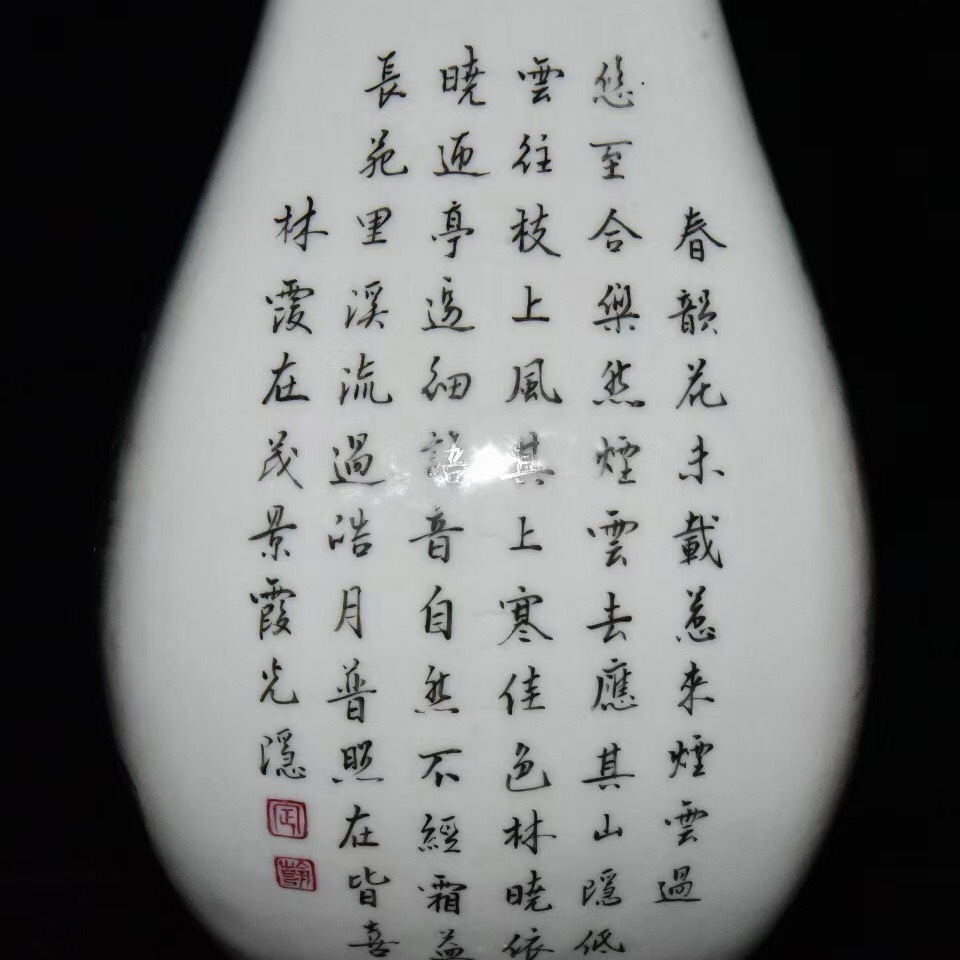 春韻花未載惹来煙雲過
悠至合樂然煙雲去應其山隱低
雲往枝上風其上寒佳色林曉依
曉迎亭邊細語音自然不經霜益
長苑里溪流過皓月普照在皆喜
林霞在茂景霞光隱